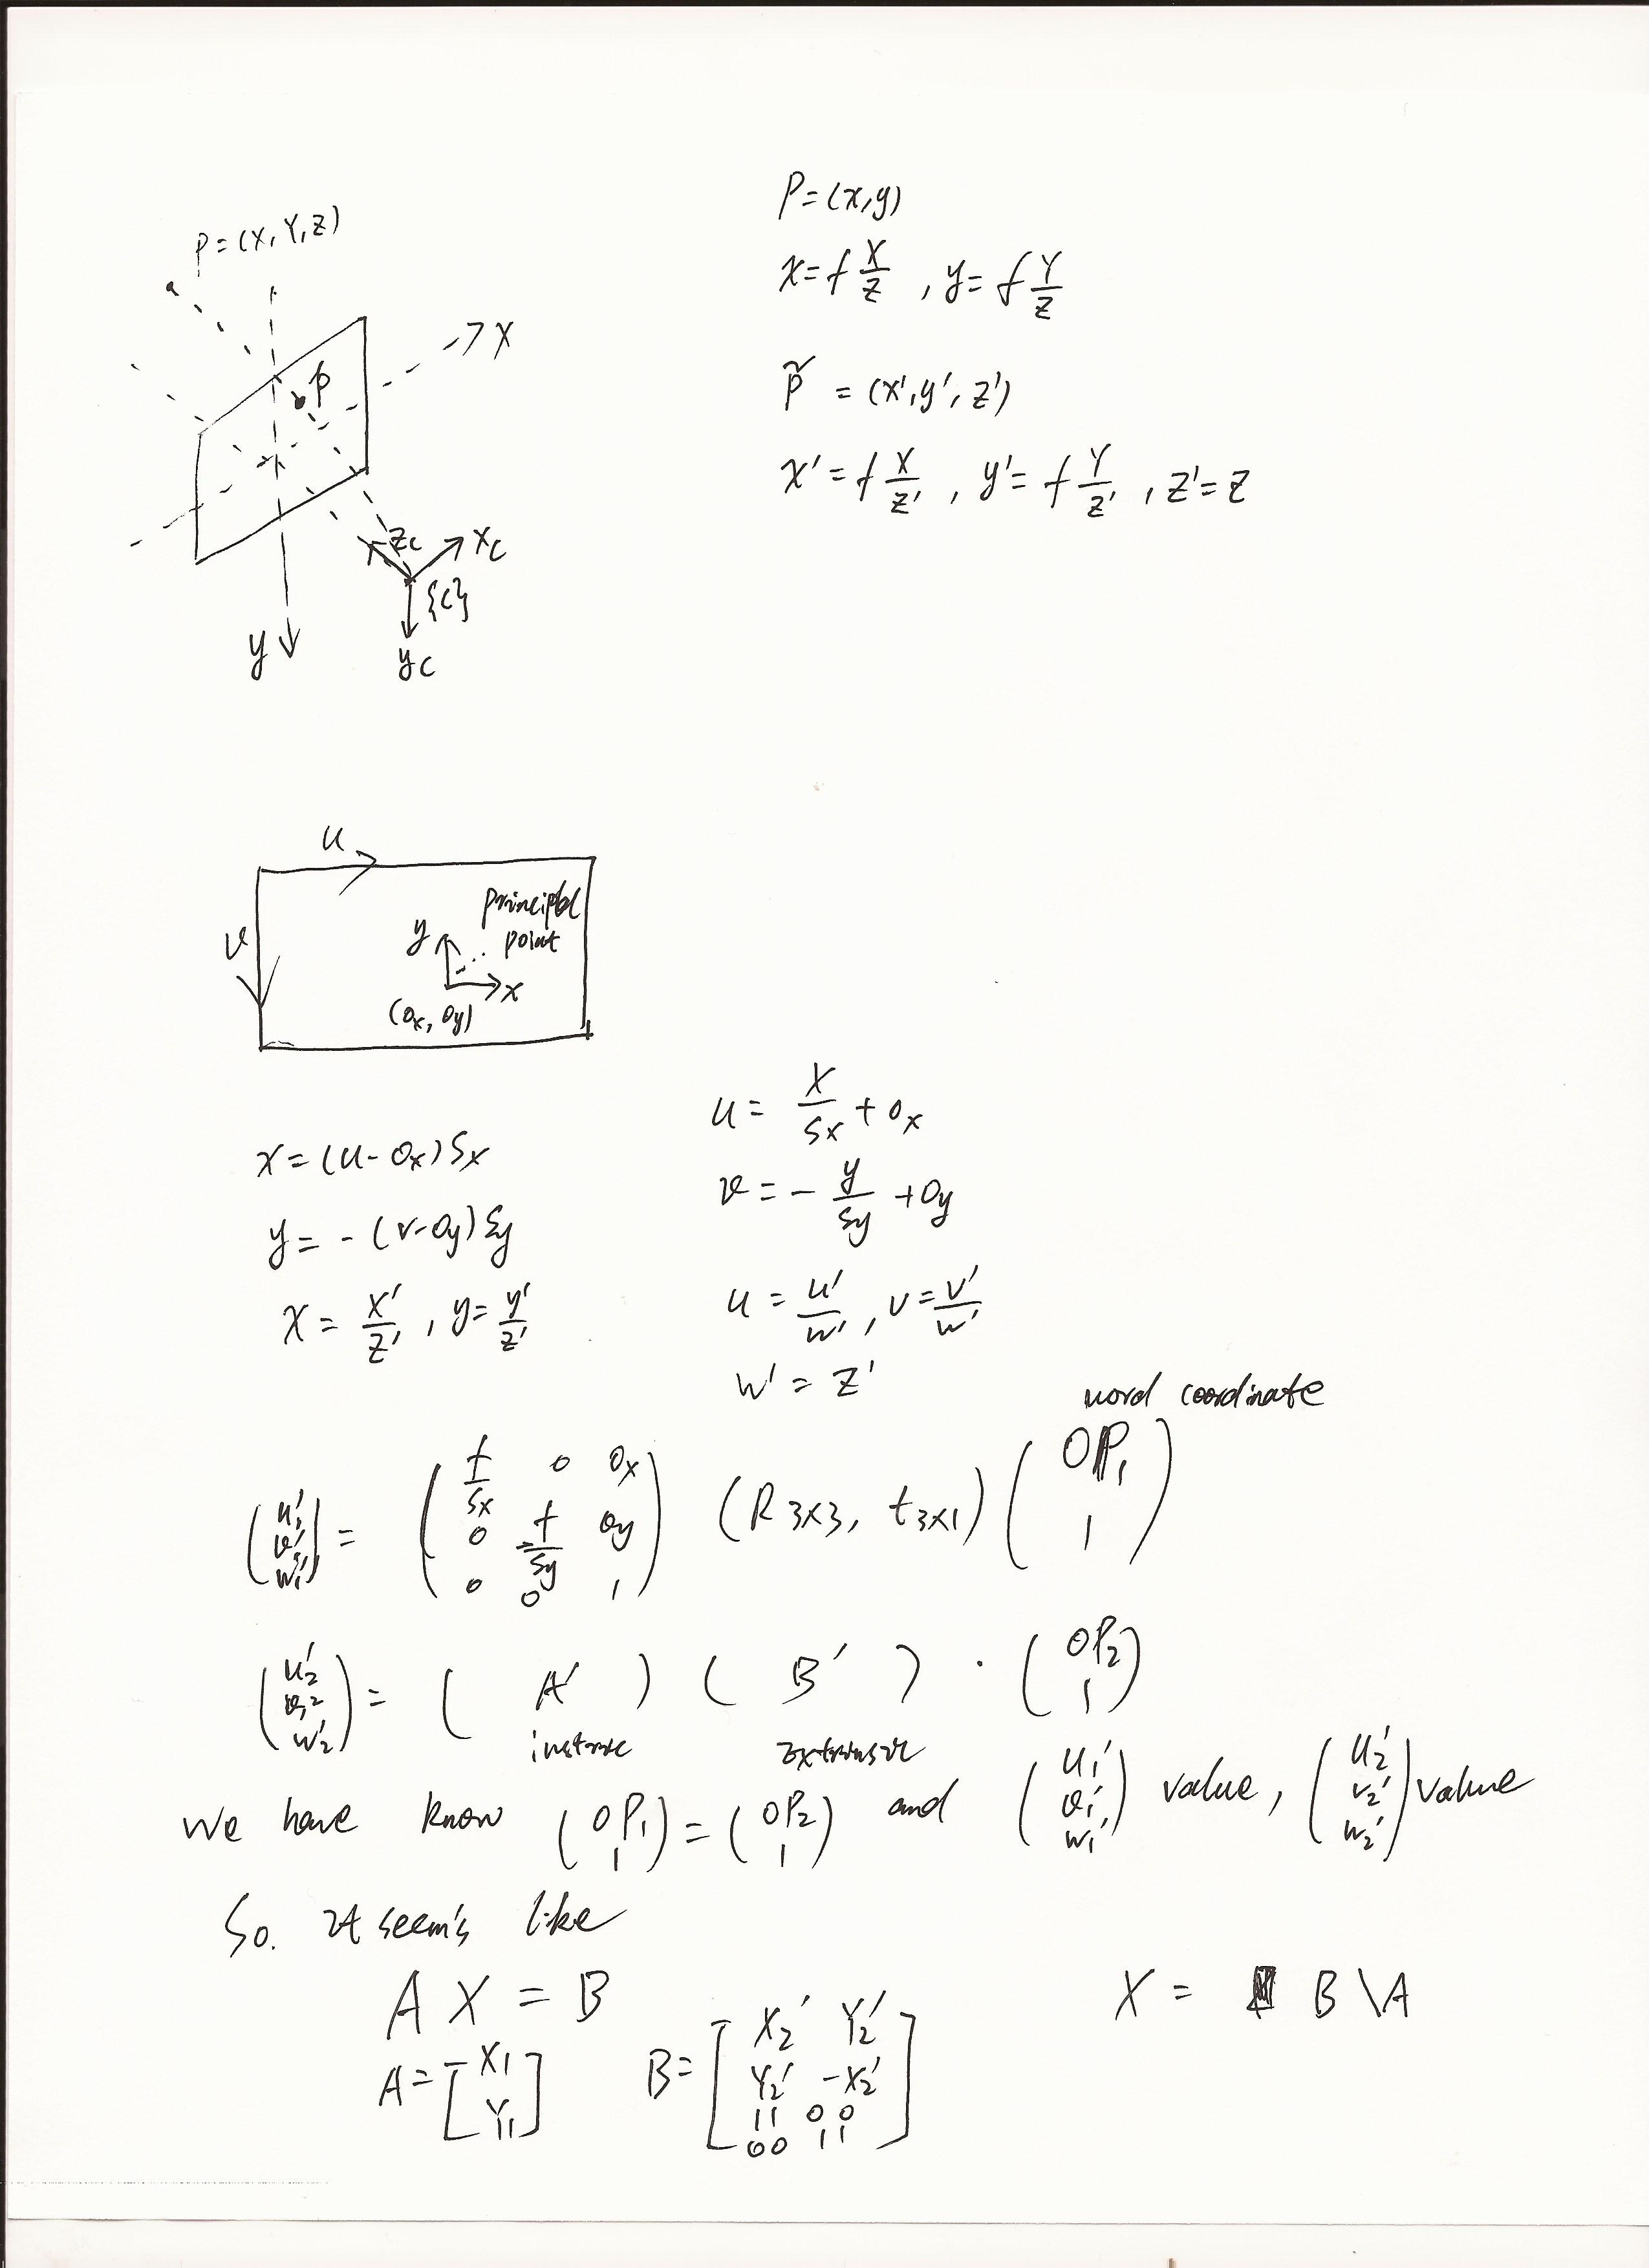 P = (X, Y, Z)
p
X
Zc
Xc
{C}
y
yc
P = (x, y)
x = f X/Z , y = f Y/Z
p̃ = (x', y', z')
x' = f X/Z' , y' = f Y/Z' , Z' = Z
u
v
principal
point
y
x
(Ox, Oy)
x = (u - Ox) Sx
y = - (v - Oy) Sy
x = x'/z' , y = y'/z'
u = X/Sx + Ox
v = - y/Sy + Oy
u = u'/w' , v = v'/w'
w' = Z'
word coordinate
(u1' v1' w1') = (f/Sx 0 Ox 0 -f/Sy Oy 0 0 1) (R 3x3, t 3x1) (OP1 1)
(u2' v2' w2') = ( A' ) ( B' ) · (OP2 1)
extrinsic
We have know (OP1 1) = (OP2 1) and (u1' v1' w1') value, (u2' v2' w2') value
So. It seem's like
A X = B
X = B \ A
A = [X1 Y1]
B = [X2' Y2' Y2' -X2' 11 00 00 11]